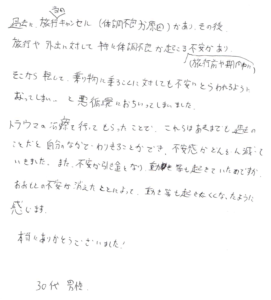 過去に、旅行キャンセル（体調不良が原因）があり、その後、
旅行や外出に対して特に体調不良が起こる不安があり
（旅行前や期間中）
そこから転じて、乗り物に乗ることに対しても不安にとらわれるように
なってしまい、悪循環におちいってしまいました。
トラウマの治療を行ってもらったことで、これらはあくまでも過去の
ことだと自分のなかで することができ、不安感がどんどん減って
いきました。また、不安が引き金となり動悸等も起きていたのですが
おおもとの不安が消えたことによって、動悸等も起きにくくなったように
感じます。
本当にありがとうございました！
30代 男性